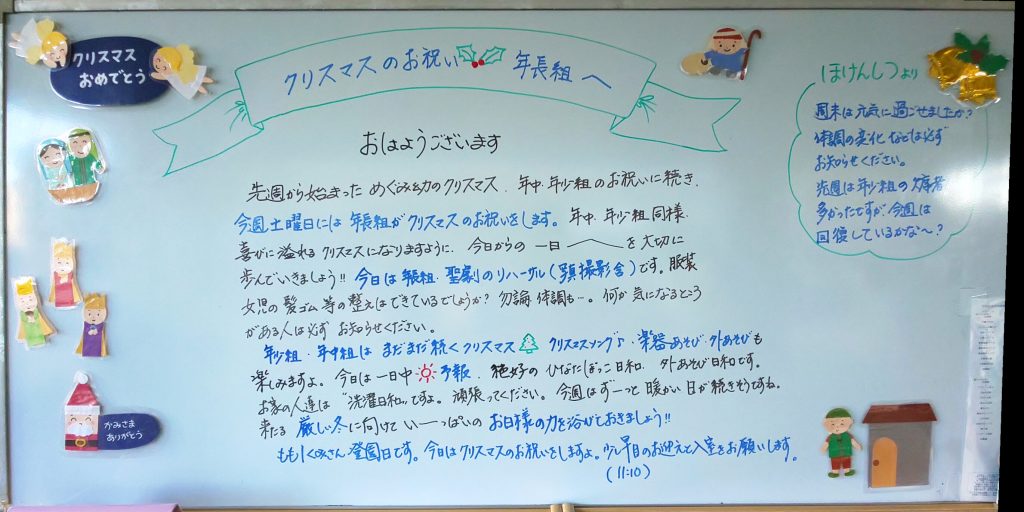 クリスマス
おめでとう
クリスマスのお祝い 年長組へ
おはようございます
先週から始まった めぐみ幼のクリスマス、年中・年少組のお祝いに続き、
今週土曜日には 年長組がクリスマスのお祝いをします。年中、年少組同様、
喜びに溢れるクリスマスになりますように、今日からの一日を大切に
歩んでいきましょう!! 今日は年長組・聖劇のリハーサル(写真撮影含)です。服装
女児の髪ゴム等の整えはできているでしょうか?勿論、体調も…。何か気になるところ
がある人は必ずお知らせください。
年少組・年中組は まだまだ続くクリスマス クリスマスソング♪・楽器あそび・外あそびも
楽しみますよ。今日は一日中 予報、絶好のひなたぼっこ日和、外あそび日和です。
お家の人達は“洗濯日和”ですよ。頑張ってください。今週はずーっと暖かい日が続きそうですね。
来たる 厳しい冬に向けて いーっぱいの お日様の力を浴びておきましょう!!
ももくみさん登園日です。今日はクリスマスのお祝いをしますよ。少し早目のお迎えで入室をお願いします。
(11:10)
ほけんしつより
週末は元気に過ごせましたか?
体調の変化などは必ず
お知らせください。
先週は年少組の欠席者
多かったですが今週は
回復しているかな〜?
かみさま
ありがとう